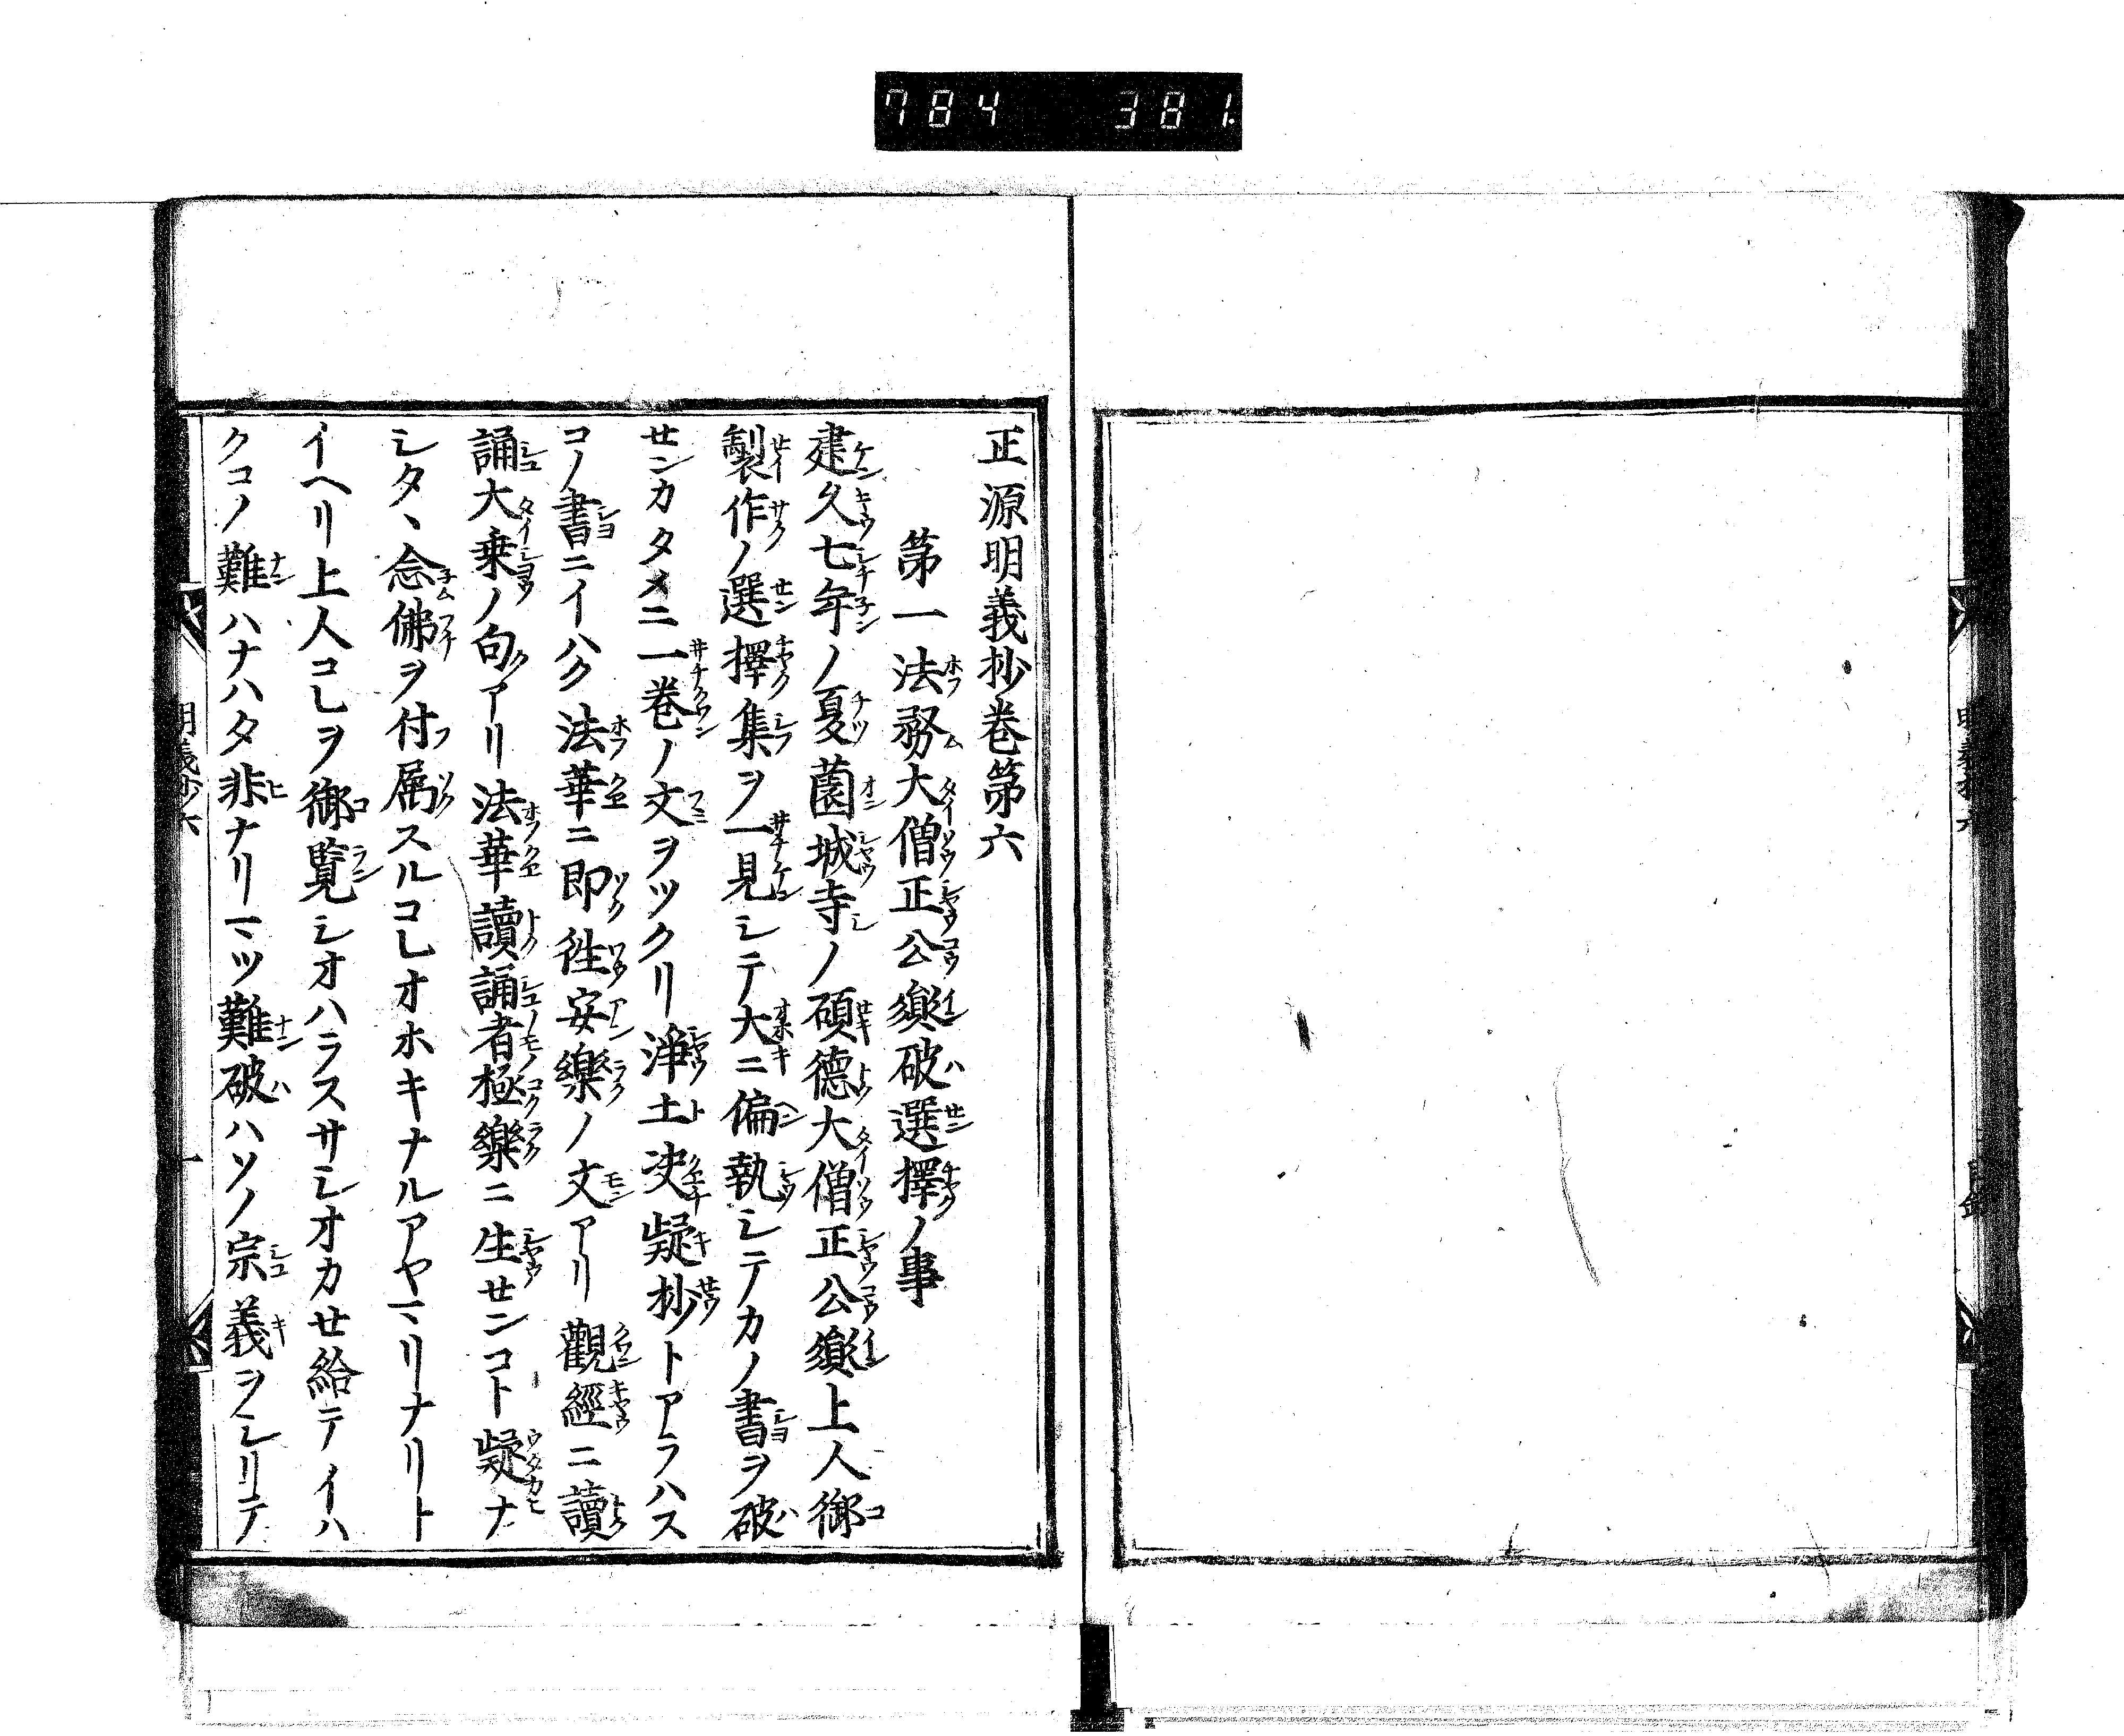 784 381.
正源明義抄巻第六
第一法務大僧正公𦙚破選擇ノ事
建久七年ノ夏薗城寺ノ碩德大僧正公𦙚上人御
製作ノ選擇集ヲ一見シテ大ニ偏執シテカノ書ヲ破
センカタメニ一巻ノ文ヲツクリ淨土決疑抄トアラハス
コノ書ニイハク法華ニ即徃安樂ノ文アリ觀經ニ讀
誦大乗ノ句アリ法華讀誦者極樂ニ生センコト疑ナ
シタヽ念佛ヲ付属スルコレオホキナルアヤマリナリト
イヘリ上人コレヲ御覧シオハラスサシオカせ給テイハ
クコノ難ハナハタ非ナリマツ難破ハソノ宗義ヲシリテ
明義抄六 一